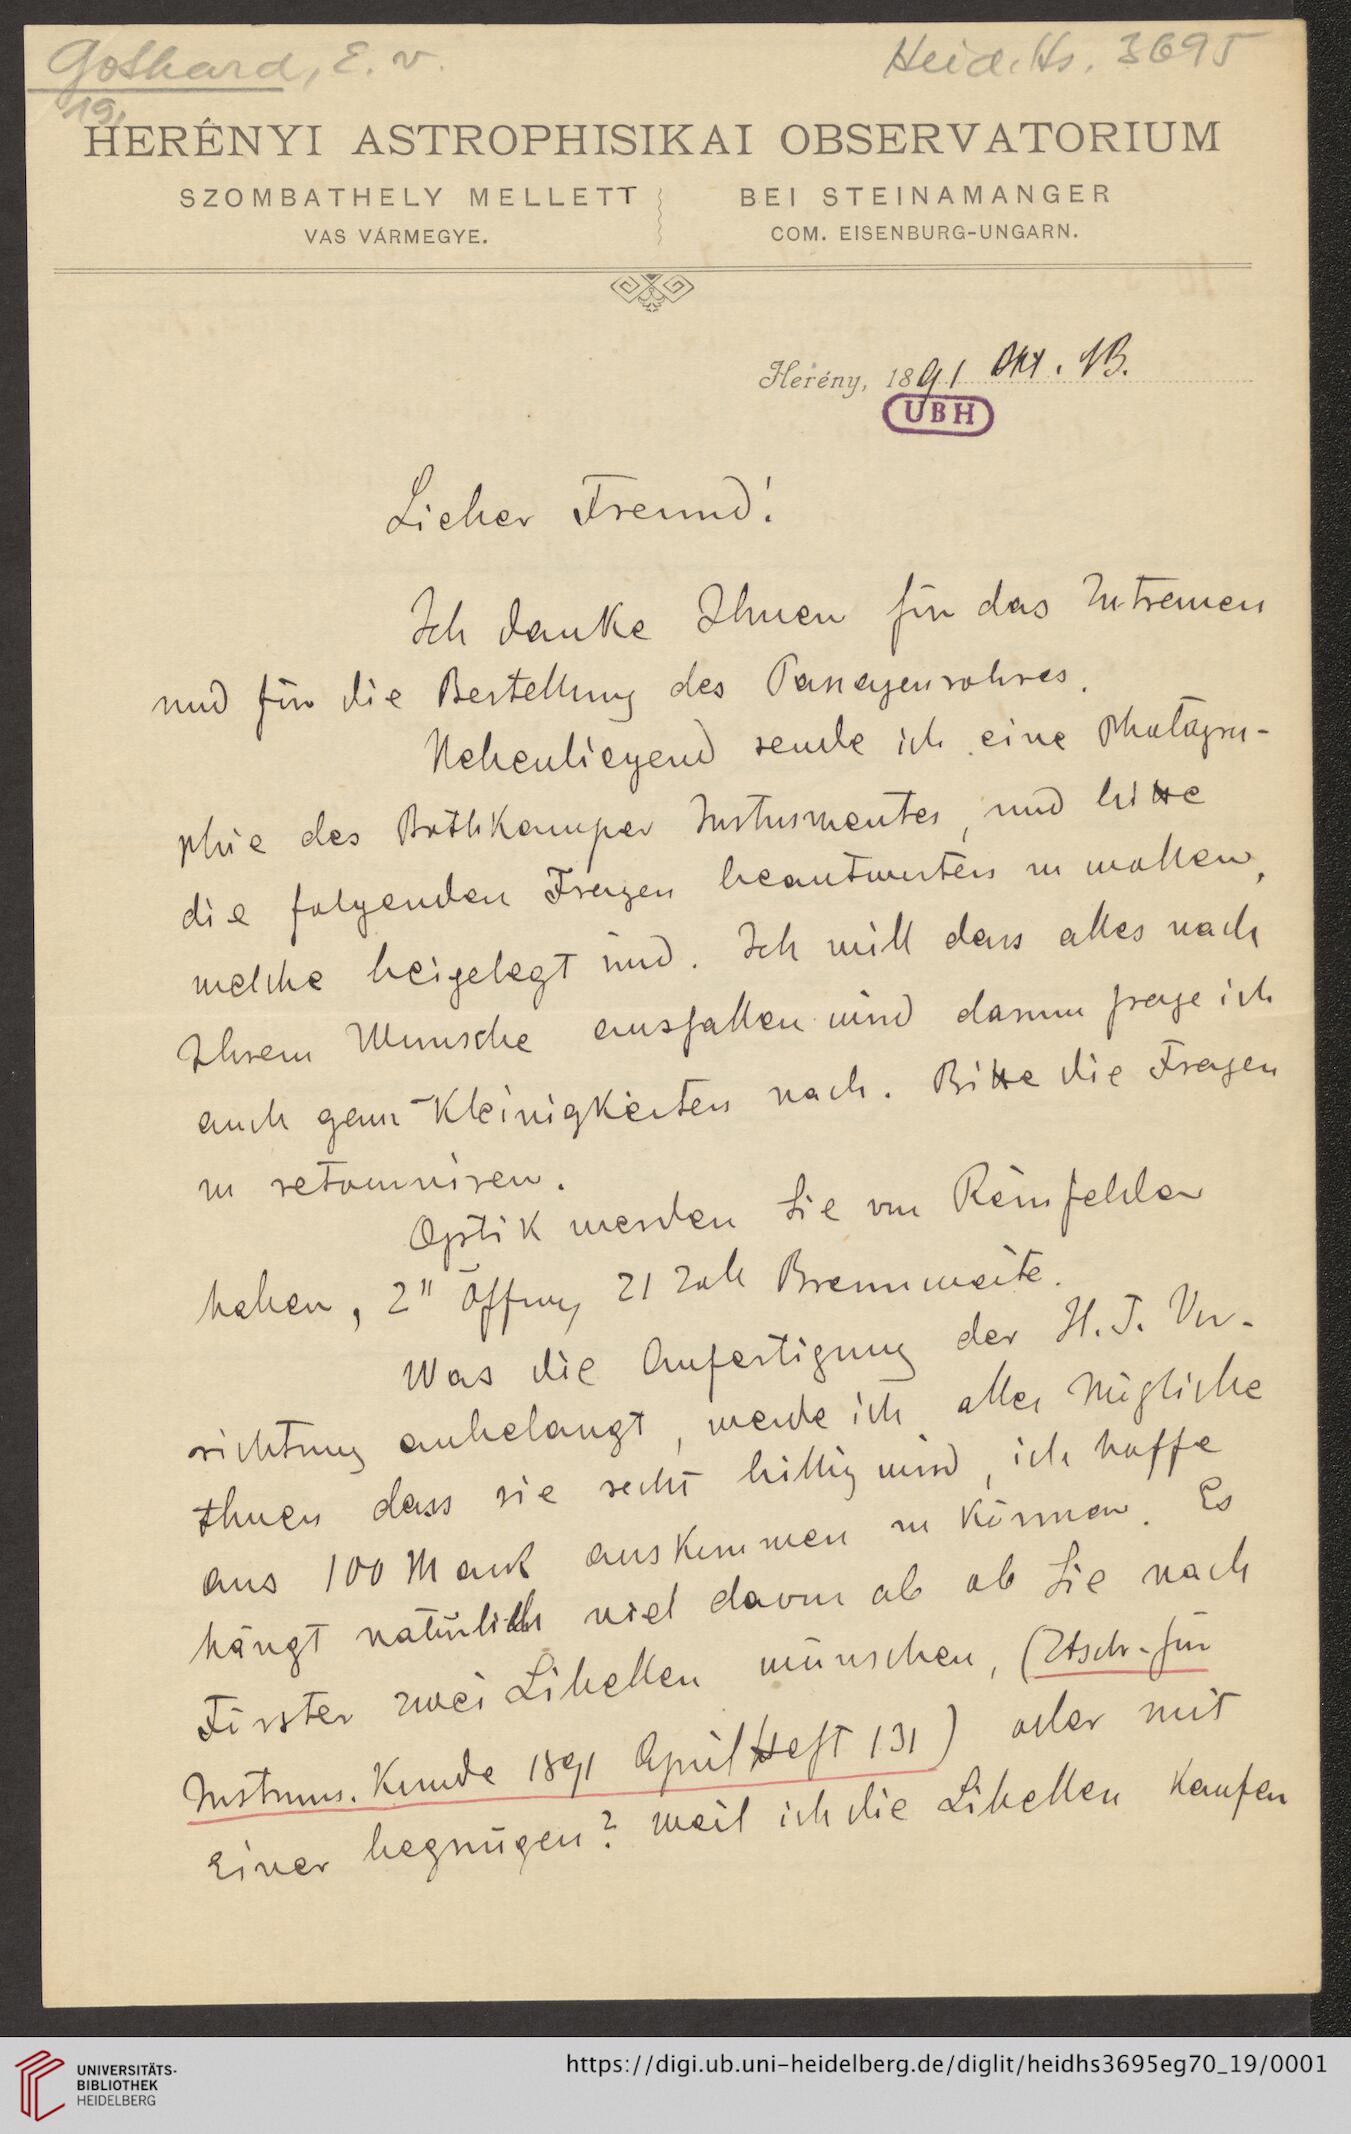 Gothard, E. v.
Heid. Hs. 3695
19,
HERÉNYI ASTROPHISIKAI OBSERVATORIUM
SZOMBATHELY MELLETT
VAS VÁRMEGYE.
BEI STEINAMANGER
COM. EISENBURG-UNGARN.
Herény, 1891 Okt. 13.
UBH
Lieber Freund!
Ich danke Ihnen für das Zutrauen
und für die Bestellung des Passagenrohres.
Nebenliegend sende ich eine Photogra-
phie des Bothkamper Instrumentes, und bitte
die folgenden Fragen beantworten zu wollen,
welche beigelegt sind. Ich will dass alles nach
Ihrem Wunsche ausfallen wird darum frage ich
auch ganz Kleinigkeiten nach. Bitte die Fragen
zu retourniren.
Optik werden Sie von Reinfelder
haben, 2" Öffnung 21 Zoll Brennweite.
Was die Anfertigung der H. T. Vor-
richtung anbelangt, werde ich alles Mögliche
thuen dass sie recht billig wird, ich hoffe
aus 100 Mark auskommen zu können. Es
hängt natürlich viel davon ab ob Sie nach
Förster zwei Libellen wünschen, (Ztschr. für
Instrum. Kunde 1891 April Heft 131) oder mit
einer begnügen? weil ich die Libellen kaufen
UNIVERSITÄTS-
BIBLIOTHEK
HEIDELBERG
https://digi.ub.uni-heidelberg.de/diglit/heidhs3695eg70_19/0001